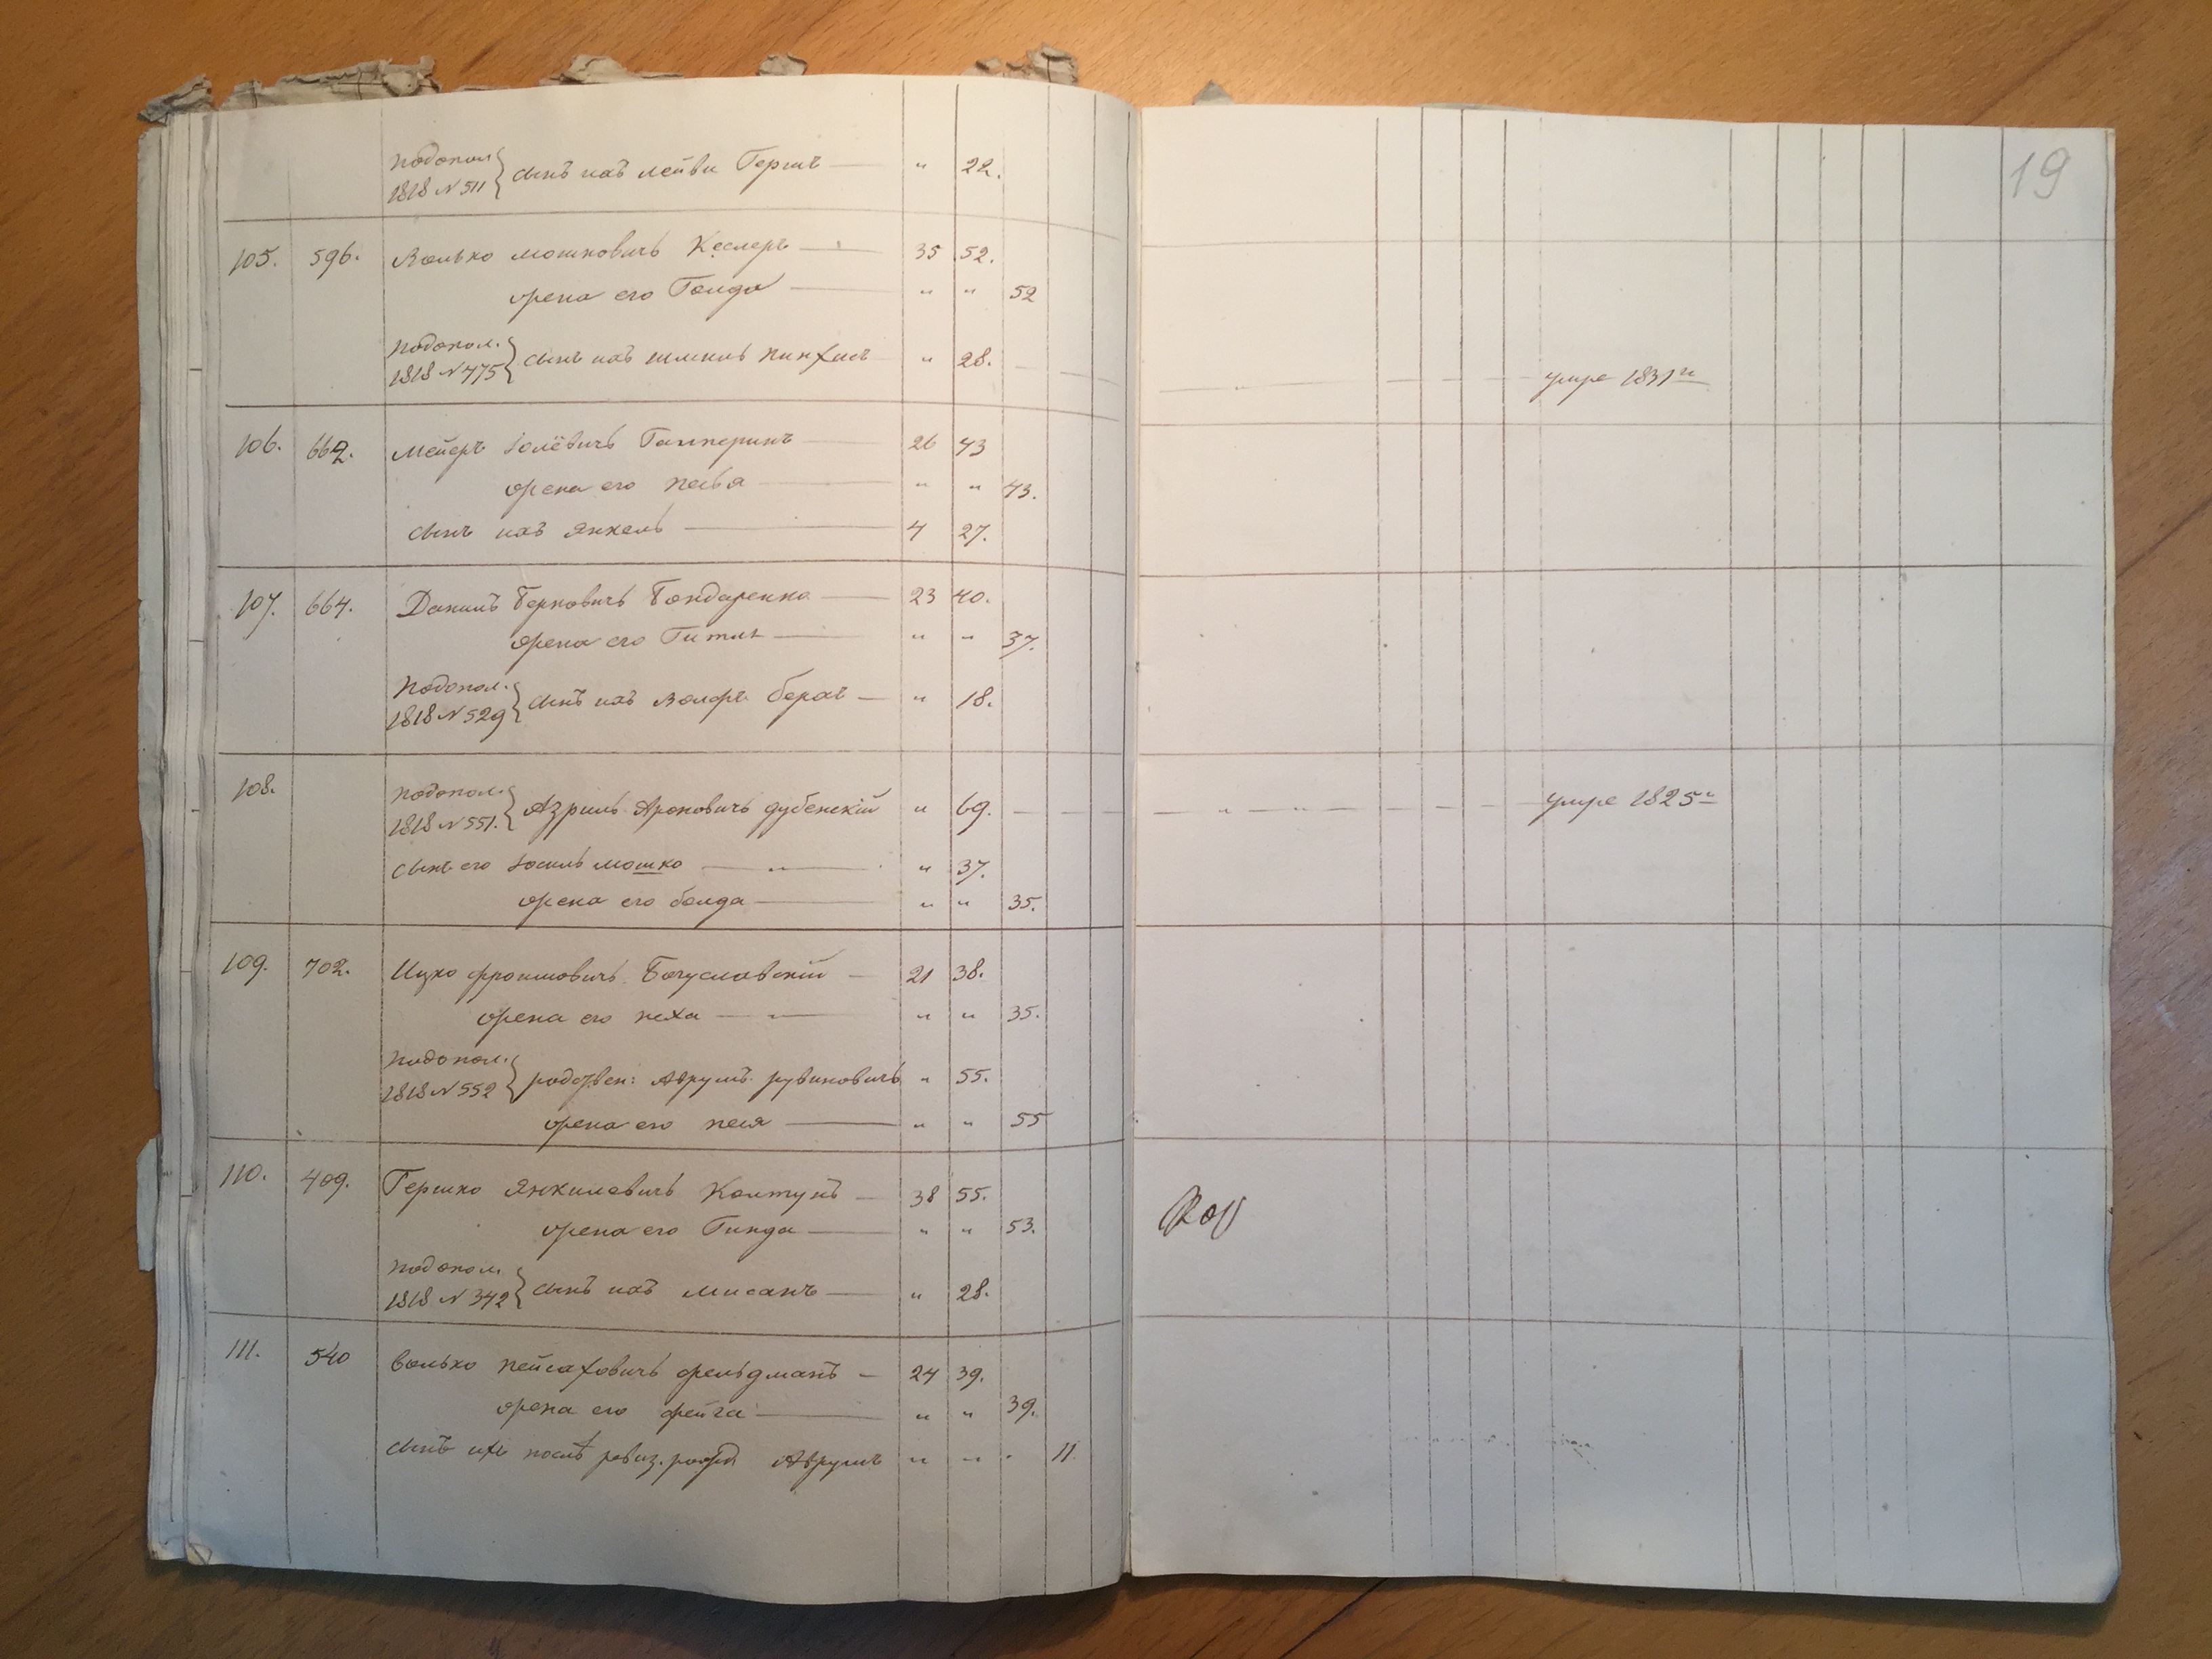 подопол. 1818 № 511 } сынъ ихъ Лейви Гершъ — " 22.
19
105. 596. Волько Мошковичъ Кеслеръ — 35 52.
жена его Голда — " " 52
подопол. 1818 № 475 } сынъ ихъ Шмиль Пинхисъ " 28. — умре 1831 г.
106. 662. Мейеръ Іолёвичъ Галперинъ — 26 43
жена его Песья — " " 43.
сынъ ихъ Янкель — 4 27.
107. 664. Данилъ Берковичъ Бондаренко — 23 40.
жена его Гитля — " " 37.
подопол. 1818 № 529 } сынъ ихъ Волфъ Беръ — " 18.
108. подопол. 1818 № 551. } Азриль Ароновичъ Дубенскій " 69. — умре 1825 г.
сынъ его Іосиль Мошко — " 37.
жена его — " " 35.
109. 702. Ицко Фроимовичъ Богуславскій — 21 38.
жена его — " " 35.
подопол. 1818 № 552 } родствен: Аврумъ Рувиновичъ " 55.
жена его Песя — " " 55
110. 409. Гершко Янкилевичъ Колтунъ — 38 55.
жена его Гинда — " " 53.
подопол. 1818 № 342 } сынъ ихъ — " 28.
111. 540 Волько Пейсаховичъ Фельдманъ — 24 39.
жена его Фейга — " " 39.
сынъ ихъ послѣ ревиз. рожд Аврумъ " " " 11